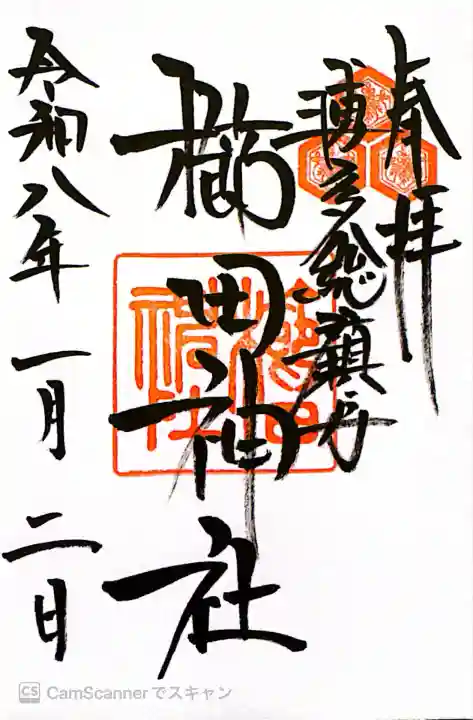 奉拝
博多総鎮守
櫛田神社
令和八年 一月 二日
櫛田神社
CS CamScannerでスキャン